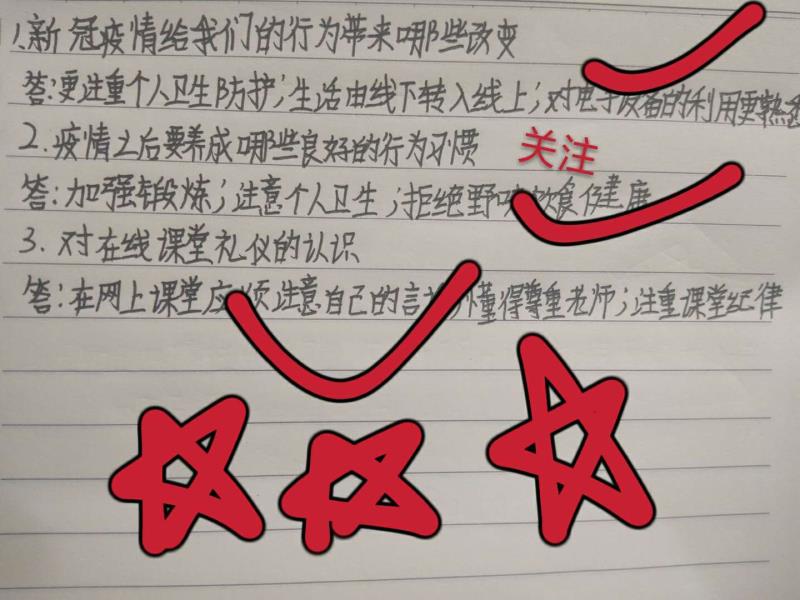 1、新冠疫情给我们的行为带来哪些改变
答:更注重个人卫生防护;生活由线下转入线上;对电子设备的利用更熟悉
2.疫情之后要养成哪些良好的行为习惯
关注
答:加强锻炼;注意个人卫生;拒绝野味饮食健康
3、对在线课堂礼仪的认识
答:在网上课堂应须注意自己的言懂得尊重老师;注重课堂纪律